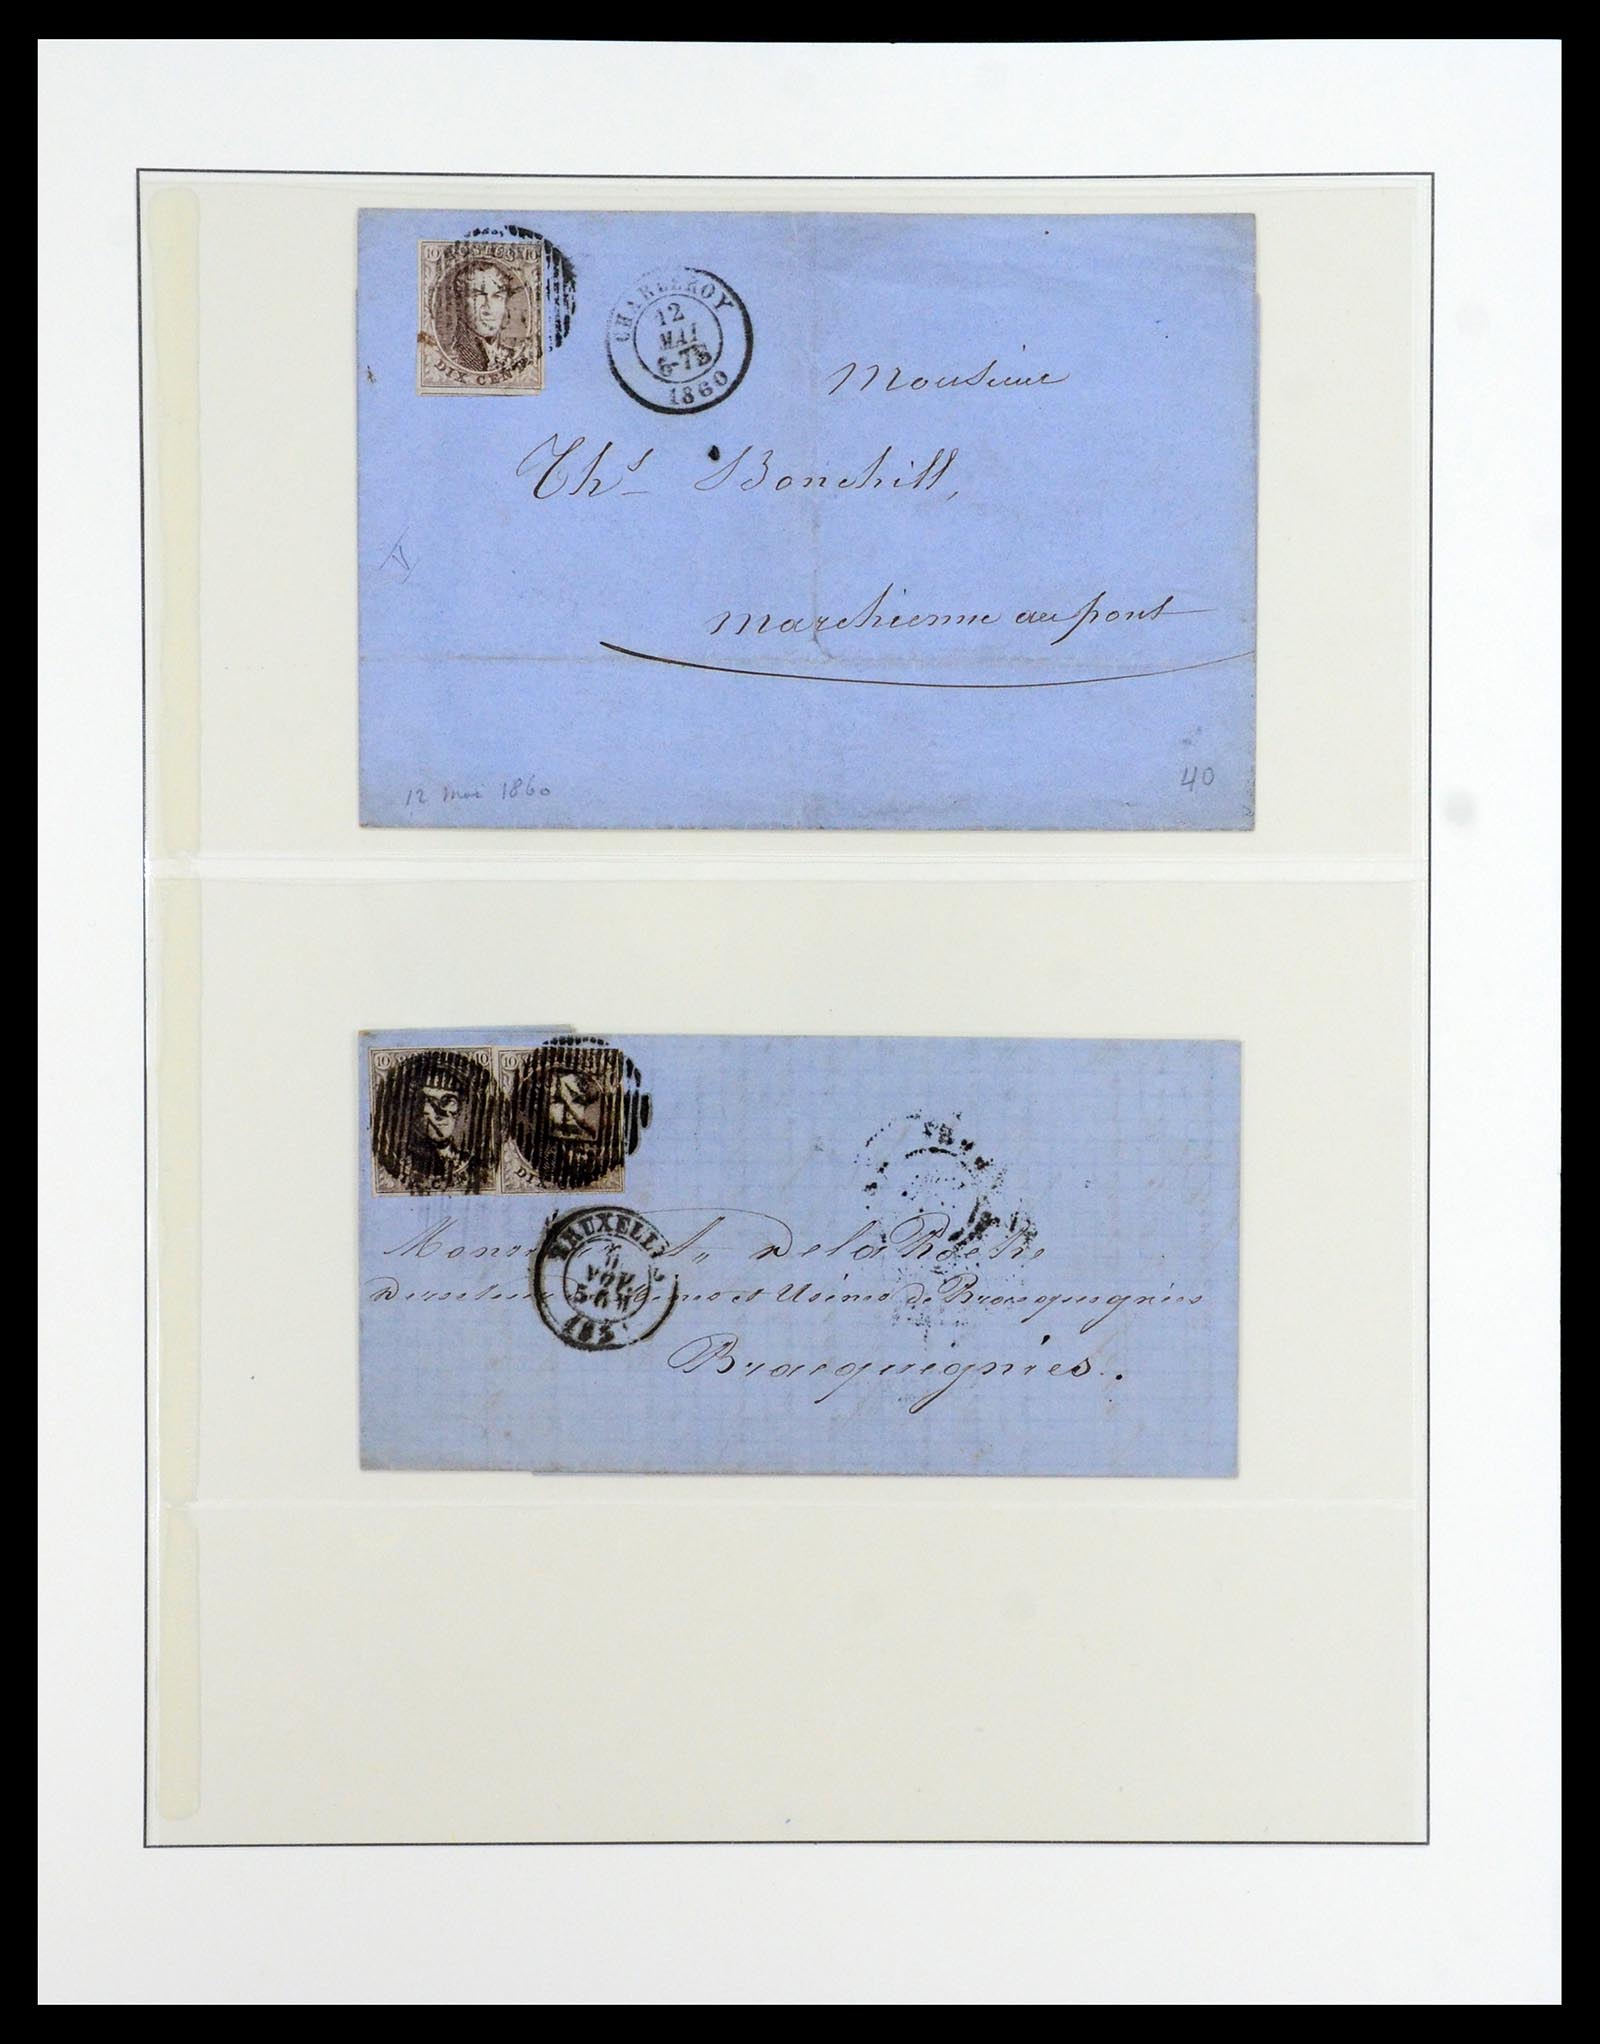 10 POSTES 10
DIX CENT.
CHARLEROY
12
MAI
6-7S
1860
Monsieur
Ths Bonehill,
Marchienne au pont
12 Mai 1860
40
10 10
10
DIX
BRUXELLES
NOV.
5-6
185
De la Roche
Directeur Mines et Usines de Bracquegnies
Bracquegnies.